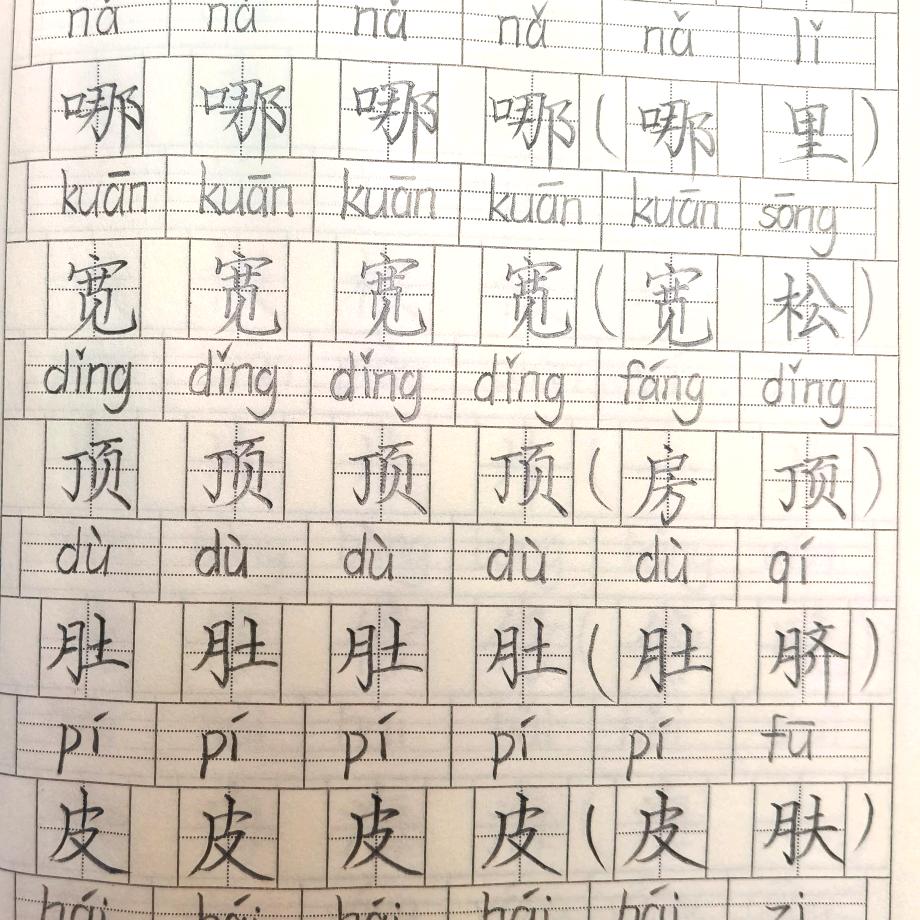 nǎ nǎ nǎ nǎ nǎ lǐ
哪 哪 哪 哪 ( 哪 里 )
kuān kuān kuān kuān kuān sōng
宽 宽 宽 宽 ( 宽 松 )
dǐng dǐng dǐng dǐng fáng dǐng
顶 顶 顶 顶 ( 房 顶 )
dù dù dù dù dù qí
肚 肚 肚 肚 ( 肚 脐 )
pí pí pí pí pí fū
皮 皮 皮 皮 ( 皮 肤 )
hái hái hái hái hái zi